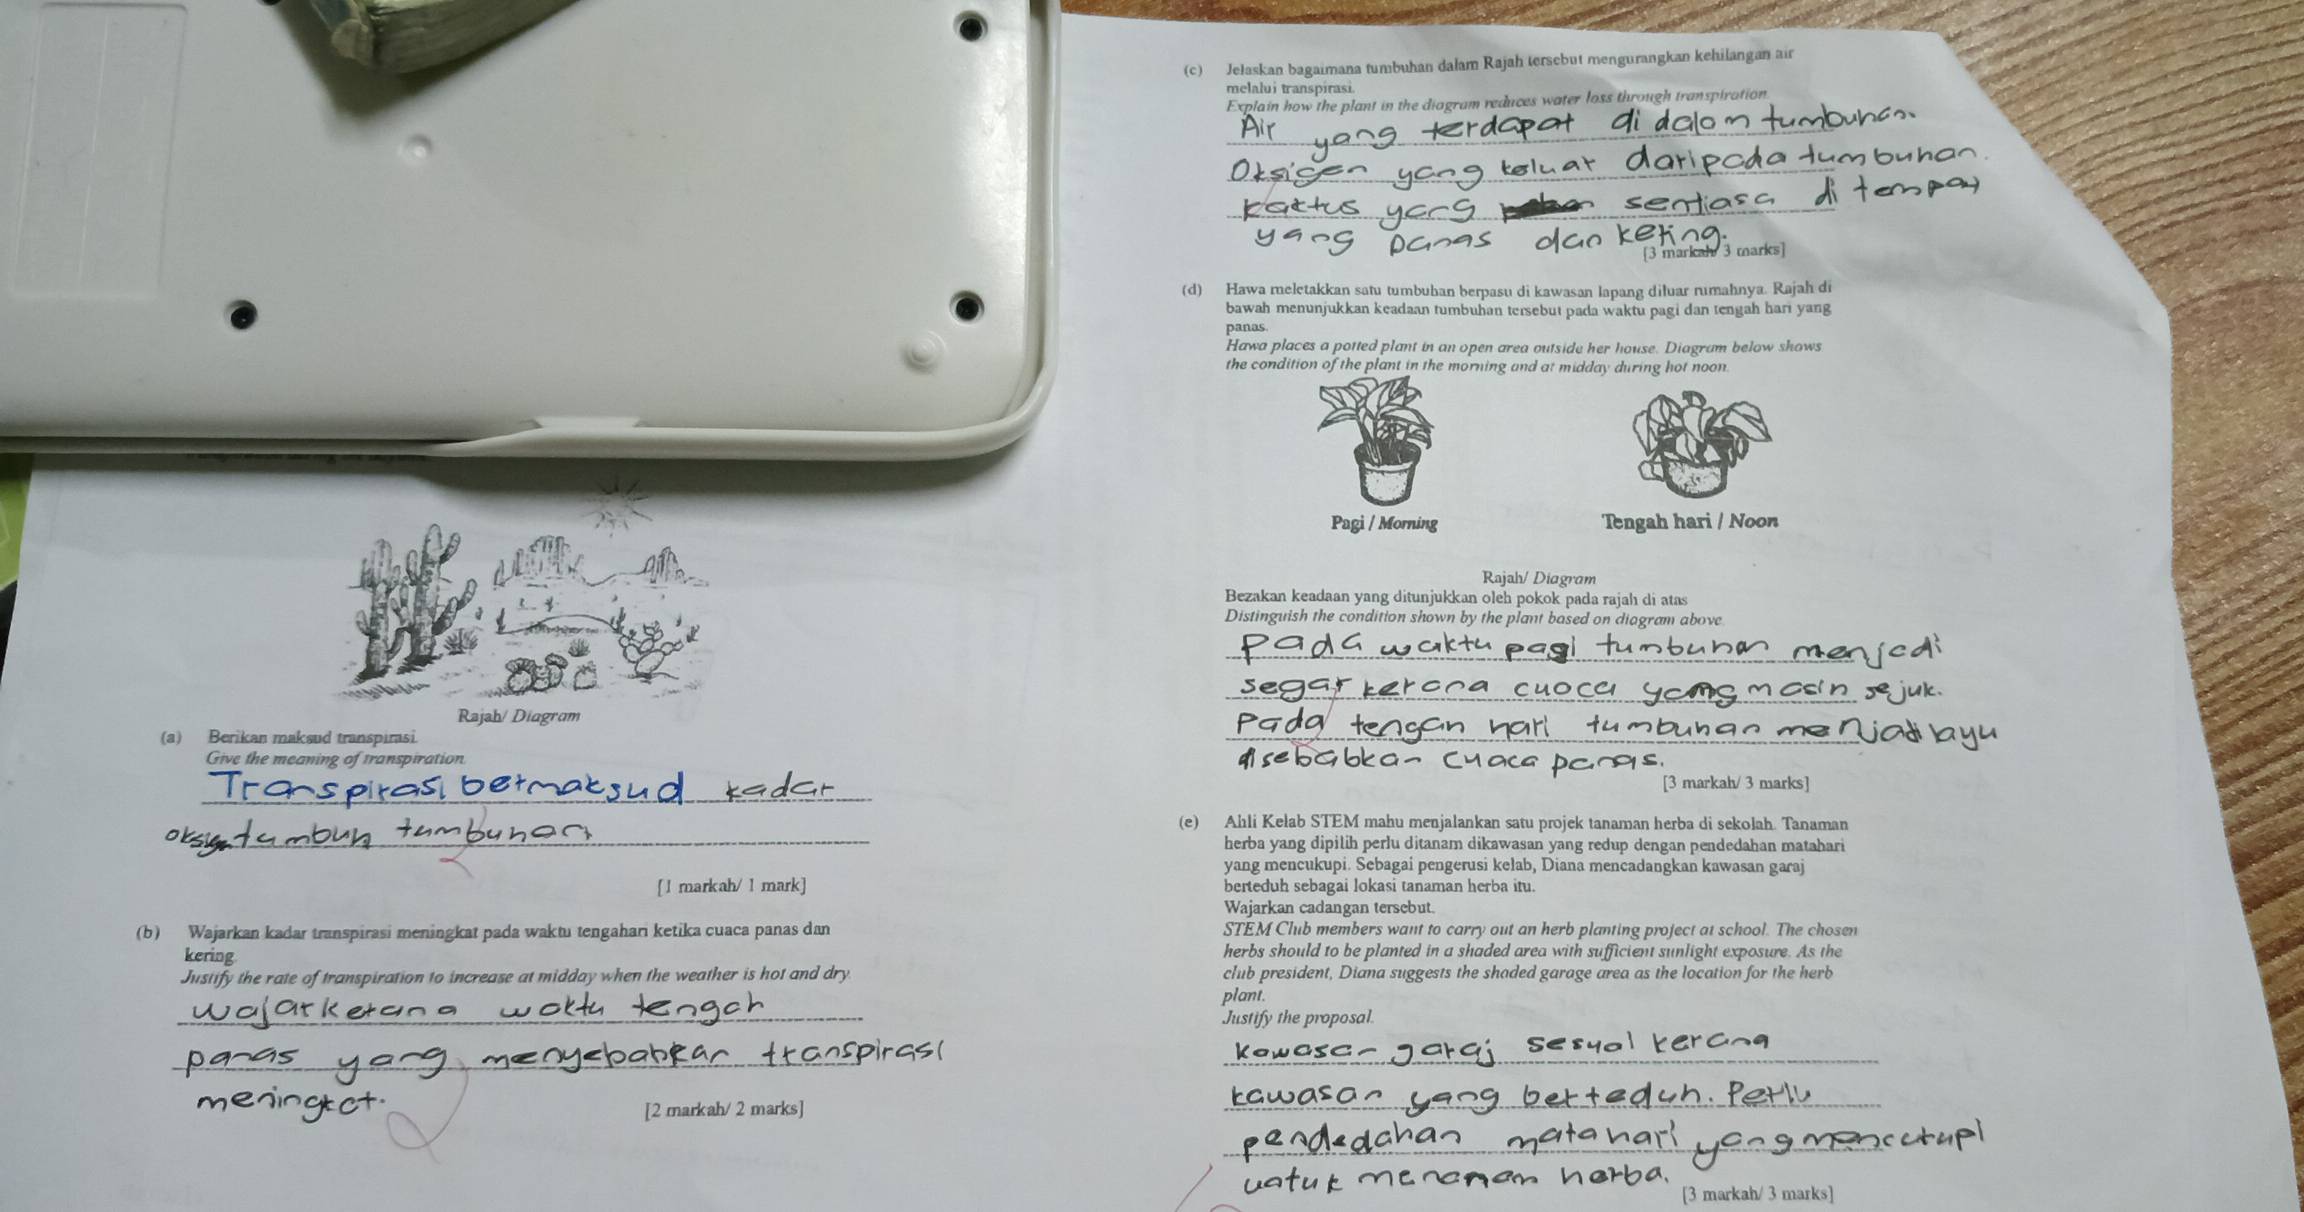 Rajah/ Diagram
(a) Berikan maksud transpirasi.
Give the meaning of transpiration
Transpirasi bermaksud kadar
tumbuh tumbuhan
[1 markah/ 1 mark]
(b) Wajarkan kadar transpirasi meningkat pada waktu tengahari ketika cuaca panas dan
kering.
Justify the rate of transpiration to increase at midday when the weather is hot and dry.
wajar kerana waktu tengah
panas yang menyebabkan transpirasi
meningkat.
[2 markah/ 2 marks]
(c) Jelaskan bagaimana tumbuhan dalam Rajah tersebut mengurangkan kehilangan air
melalui transpirasi.
Explain how the plant in the diagram reduces water loss through transpiration.
Air yang terdapat di dalam tumbuhan.
Oksigen yang keluar daripada tumbuhan.
kaktus yang sentiasa di tempat
yang panas dan kering.
[3 markah/ 3 marks]
(d) Hawa meletakkan satu tumbuhan berpasu di kawasan lapang diluar rumahnya. Rajah di
bawah menunjukkan keadaan tumbuhan tersebut pada waktu pagi dan tengah hari yang
panas.
Hawa places a potted plant in an open area outside her house. Diagram below shows
the condition of the plant in the morning and at midday during hot noon.
Pagi / Morning
Tengah hari / Noon
Rajah/ Diagram
Bezakan keadaan yang ditunjukkan oleh pokok pada rajah di atas
Distinguish the condition shown by the plant based on diagram above.
Pada waktu pagi tumbuhan menjadi
segar kerana cuaca yang masin sejuk.
Pada tengah hari tumbuhan menjadi layu
disebabkan cuaca panas.
[3 markah/ 3 marks]
(e) Ahli Kelab STEM mahu menjalankan satu projek tanaman herba di sekolah. Tanaman
herba yang dipilih perlu ditanam dikawasan yang redup dengan pendedahan matahari
yang mencukupi. Sebagai pengerusi kelab, Diana mencadangkan kawasan garaj
berteduh sebagai lokasi tanaman herba itu.
Wajarkan cadangan tersebut.
STEM Club members want to carry out an herb planting project at school. The chosen
herbs should to be planted in a shaded area with sufficient sunlight exposure. As the
club president, Diana suggests the shaded garage area as the location for the herb
plant.
Justify the proposal.
kawasan garaj sesuai kerana
kawasan yang berteduh. Perlu
pendedahan matahari yang mencukupi
untuk menanam herba.
[3 markah/ 3 marks]